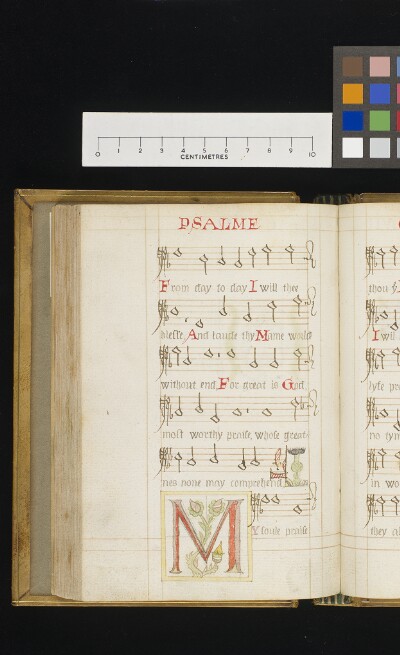 0 1 2 3 4 5 6 7 8 9 10
CENTIMETRES
PSALME
From day to day I will the
blesse And laude thy Name world
without end, For great is God,
most worthy praise, whose great-
nes none may comprehend
MY soule praise
thou
I will
lyfe
no
in wo
they